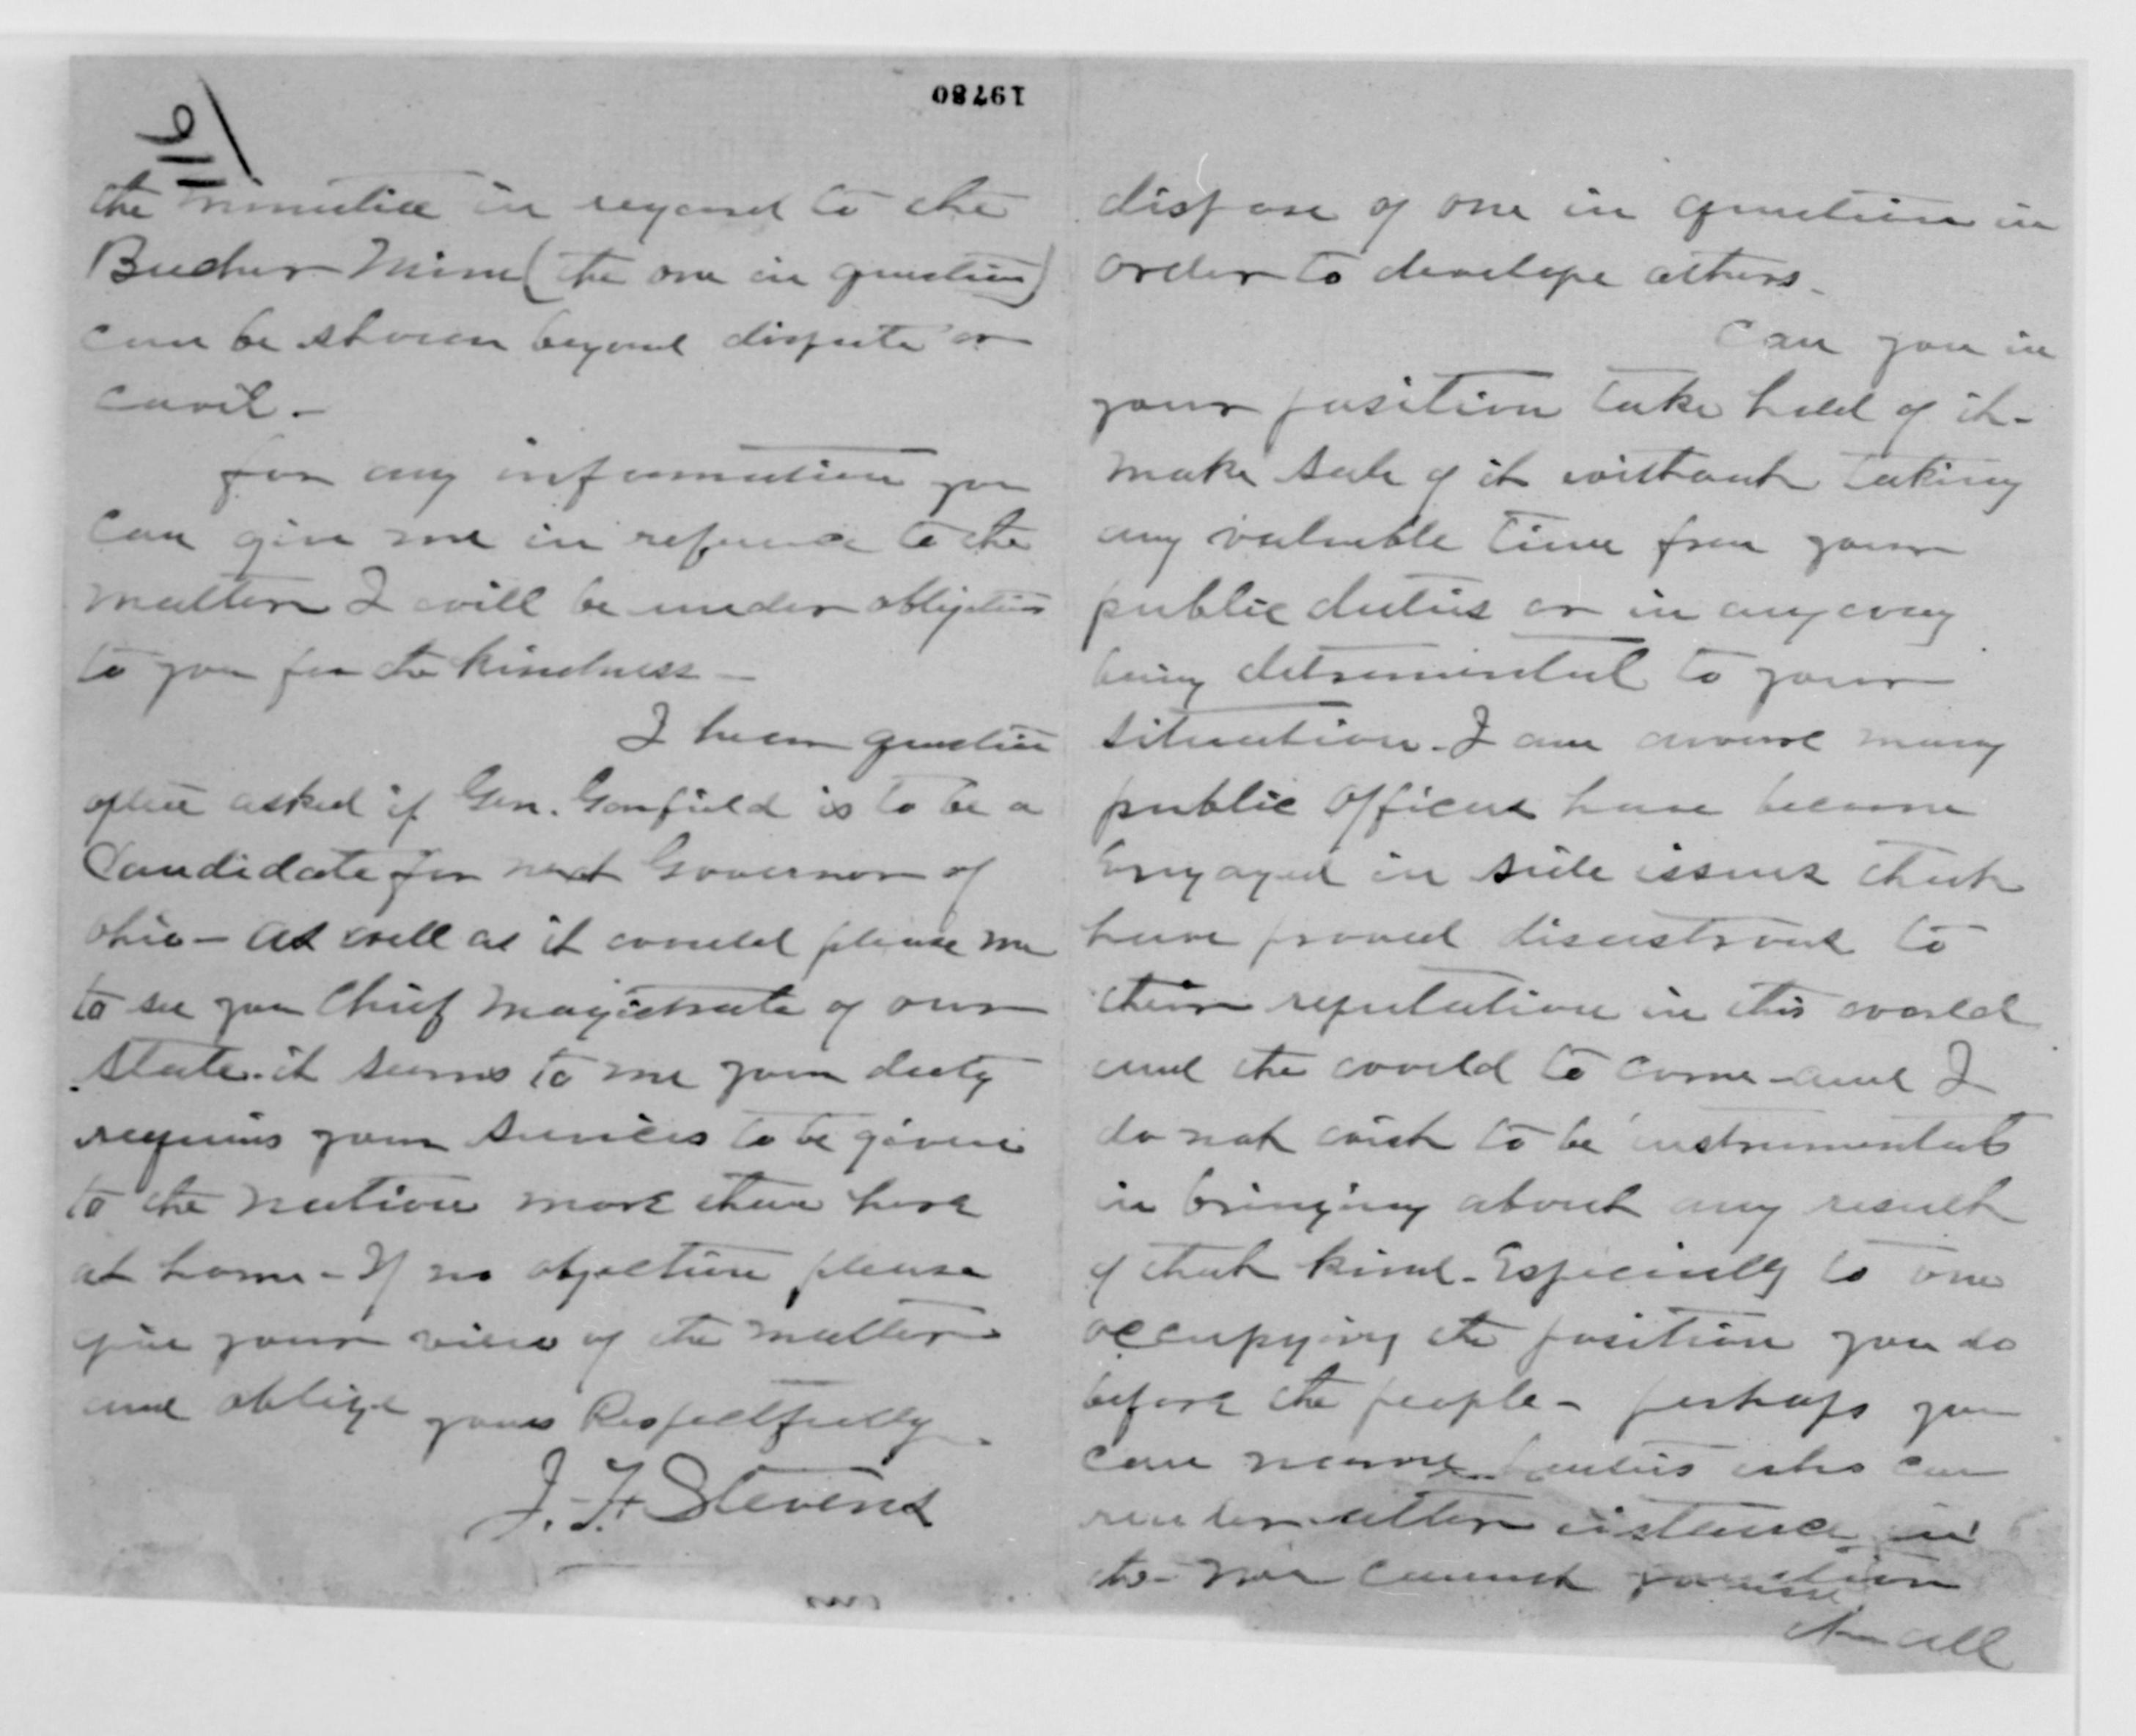 19780
the minutiae in regard to the
Bucher Mine (the one in question)
can be shown beyond dispute or
cavil -
for any information you
can give me in reference to the
matter I will be under obligation
to you for the kindness -
I hear question
often asked if Gen. Garfield is to be a
Candidate for next Governor of
Ohio - as well as it would please me
to see you Chief Magistrate of our
State. it seems to me your duty
requires your services to be given
to the nation more than here
at home - If no objection please
give your view of the matter
and oblige yours Respectfully
J. F. Stevens
dispose of one in question in
order to develope others.
Can you in
your position take hold of it -
make sale of it without taking
any valuable time from your
public duties or in any way
being detrimental to your
situation. I am aware many
public officers have become
Engaged in side issues that
have proved disastrous to
their reputation in this world
and the world to come - and I
do not wish to be instrumental
in bringing about any result
of that kind - Especially to one
occupying the position you do
before the people - perhaps you
can name parties who can
render in
the cannot question
all